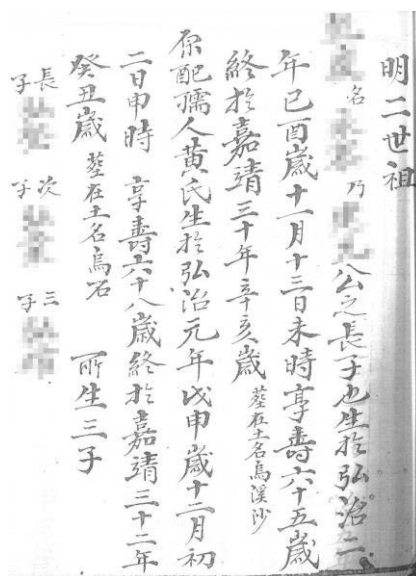 明二世祖
名 乃 公之長子也生扵弘治二
年己酉歲十一月十三日未時享壽六十五歲
終扵嘉靖三十年辛亥歲 塟在土名烏溪沙
原配孺人黃氏生扵弘治元年戊申歲十二月初
二日申時 享壽六十八歲終扵嘉靖三十二年
癸丑歲 塟在土名烏石 所生三子
長子 次子 三子